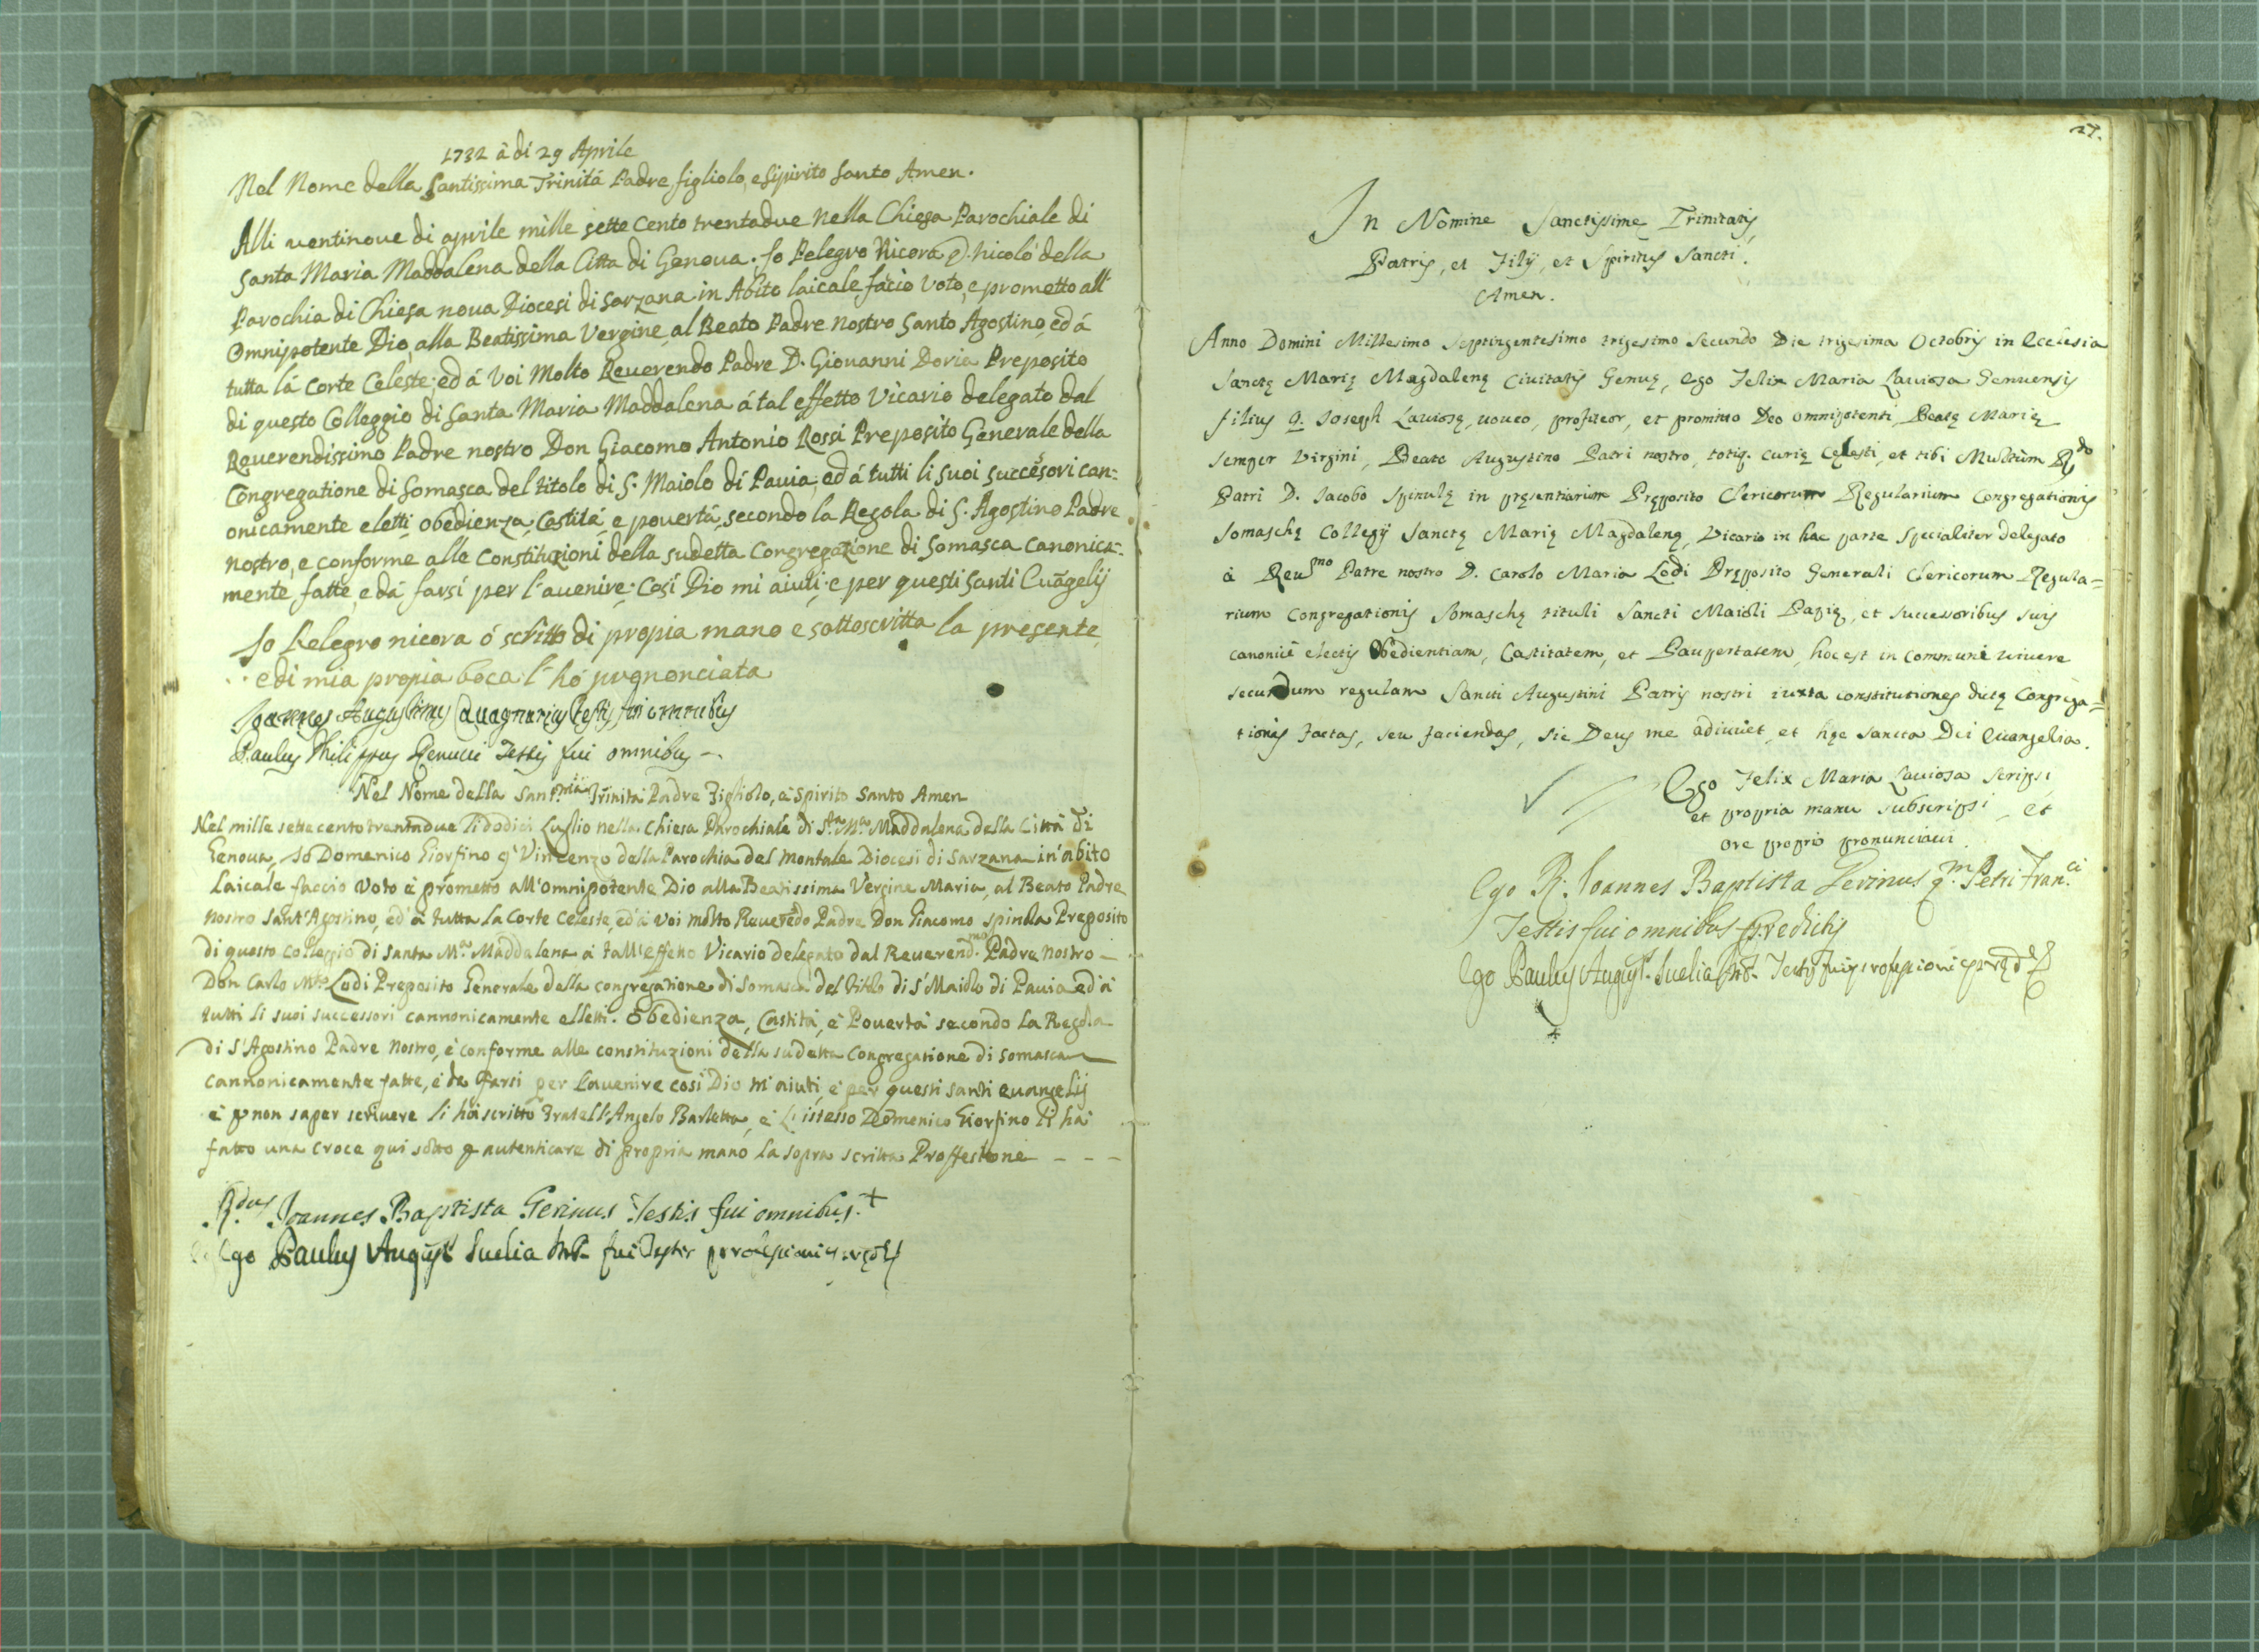 1732 à di 29 Aprile
Nel Nome della Santissima Trinitá Padre, figliolo, e Spirito Santo Amen.
Alli ventinove di aprile mille sette cento trentadue nella Chiesa Parochiale di
Santa Maria Maddalena della Citta di Genova. Io Pelegro Nicora q. Nicoló della
Parochia di Chiesa nova Diocesi di Sarzana in Abito laicale facio voto, e prometto all'
Omnipotente Dio, alla Beatissima Vergine, al Beato Padre nostro Santo Agostino, ed á
tutta lá Corte Celeste; ed á Voi Molto Reverendo Padre D. Giovanni Doria Preposito
di questo Colleggio di Santa Maria Maddalena á tal effetto Vicario delegato dal
Reverendissimo Padre nostro Don Giacomo Antonio Rossi Preposito Generale della
Congregatione di Somasca del titolo di S. Maiolo di Pavia, ed á tutti li suoi successori can=
onicamente eletti, obedienza, Castitá e povertá, secondo la Regola di S. Agostino Padre
nostro, e conforme alle Constituzioni della sudetta Congregazione di Somasca canonica=
mente fatte, e dá farsi per l'avenire; Cosi Dio mi aiuti, e per questi Santi Euãgelij
Io Pelegro nicora ó scritto di propia mano e sottoscritta la presente
e di mia propia boca l'hó prononciata
Joannes Augustinus Quagnarius testis fui omnibus
Paulus Philippus Renucci Testis fui omnibus
Nel Nome della Sant.ma Trinità Padre Figliolo, è Spirito Santo Amen
Nel mille sette cento trentadue li dodici Luglio nella Chiesa Parochiale di S.ta M.a Maddalena della Città di
Genova, Io Domenico Giorfino q. Vincenzo della Parochia del Montale Diocesi di Sarzana in'abito
Laicale faccio voto è prometto all'omnipotente Dio alla Beatissima Vergine Maria, al Beato Padre
nostro Sant'Agostino, ed'à tutta la Corte Celeste, ed'à voi molto Reverẽdo Padre Don Giacomo Spinola Preposito
di questo Colleggio di Santa M.a Maddalena à tall'effetto Vicario delegato dal Reverend.mo Padre nostro
Don Carlo M.a Lodi Preposito Generale della congregatione di Somasca del titolo di S. Maiolo di Pavia ed à
tutti li suoi successori cannonicamente elletti. obedienza, Castità, è Povertà secondo la Regola
di S. Agostino Padre nostro, è conforme alle constituzioni della sudetta Congregatione di Somasca
cannonicamente fatte, è da farsi per l'avenire cosi Dio m'aiuti, è per questi santi evangelij
è p non saper scrivere li hà scritto Fratell'Angelo Barletta, è l'istesso Domenico Giorfino li hà
fatto una croce qui sotto p autenticare di propria mano la sopra scritta Proffessione - - -
R.dus Joannes Baptista Gerinus Testis fui omnibus. +
Ego Paulus August. Suelia fui Testis professioni
27.
In Nomine Sanctissime Trinitatis
Patris, et Filij, et Spiritus Sancti.
Amen.
Anno Domini Millesimo septingentesimo trigesimo secundo Die trigesima Octobris in Ecclesia
Sanctę Marię Magdalenę Civitatis Genuę, Ego Felix Maria Laviosa Genuensis
filius q. Joseph Laviosę, voveo, profiteor, et promitto Deo omnipotenti, Beatę Marię
semper Virgini, Beato Augustino Patri nostro, totiq. Curię Cęlesti, et tibi Multùm R.do
Patri D. Jacobo Spinulę in pręsentiarum Pręposito Clericorum Regularium Congregationis
Somaschę Collegij Sanctę Marię Magdalenę, Vicario in hac parte specialiter delegato
à Reu.mo Patre nostro D. Carolo Maria Lodi Pręposito Generali Clericorum Regula=
rium Congregationis Somaschę tituli Sancti Maioli Papię, et successoribus suis
canonicè electis Obedientiam, Castitatem, et Paupertatem, hoc est in communi vivere
secundum regulam Sancti Augustini Patris nostri iuxta constitutiones dictę Congrega=
tionis factas, seu faciendas, sic Deus me adiuvet, et hęc sancta Dei Evangelia.
Ego Felix Maria Laviosa scripsi
et propria manu subscripsi, et
ore proprio pronunciavi
Ego R. Joannes Baptista Gerinus q.m Petri Fran.ci
Testis fui omnibus predictis
Ego Paulus August. Suelia Testis fui professioni